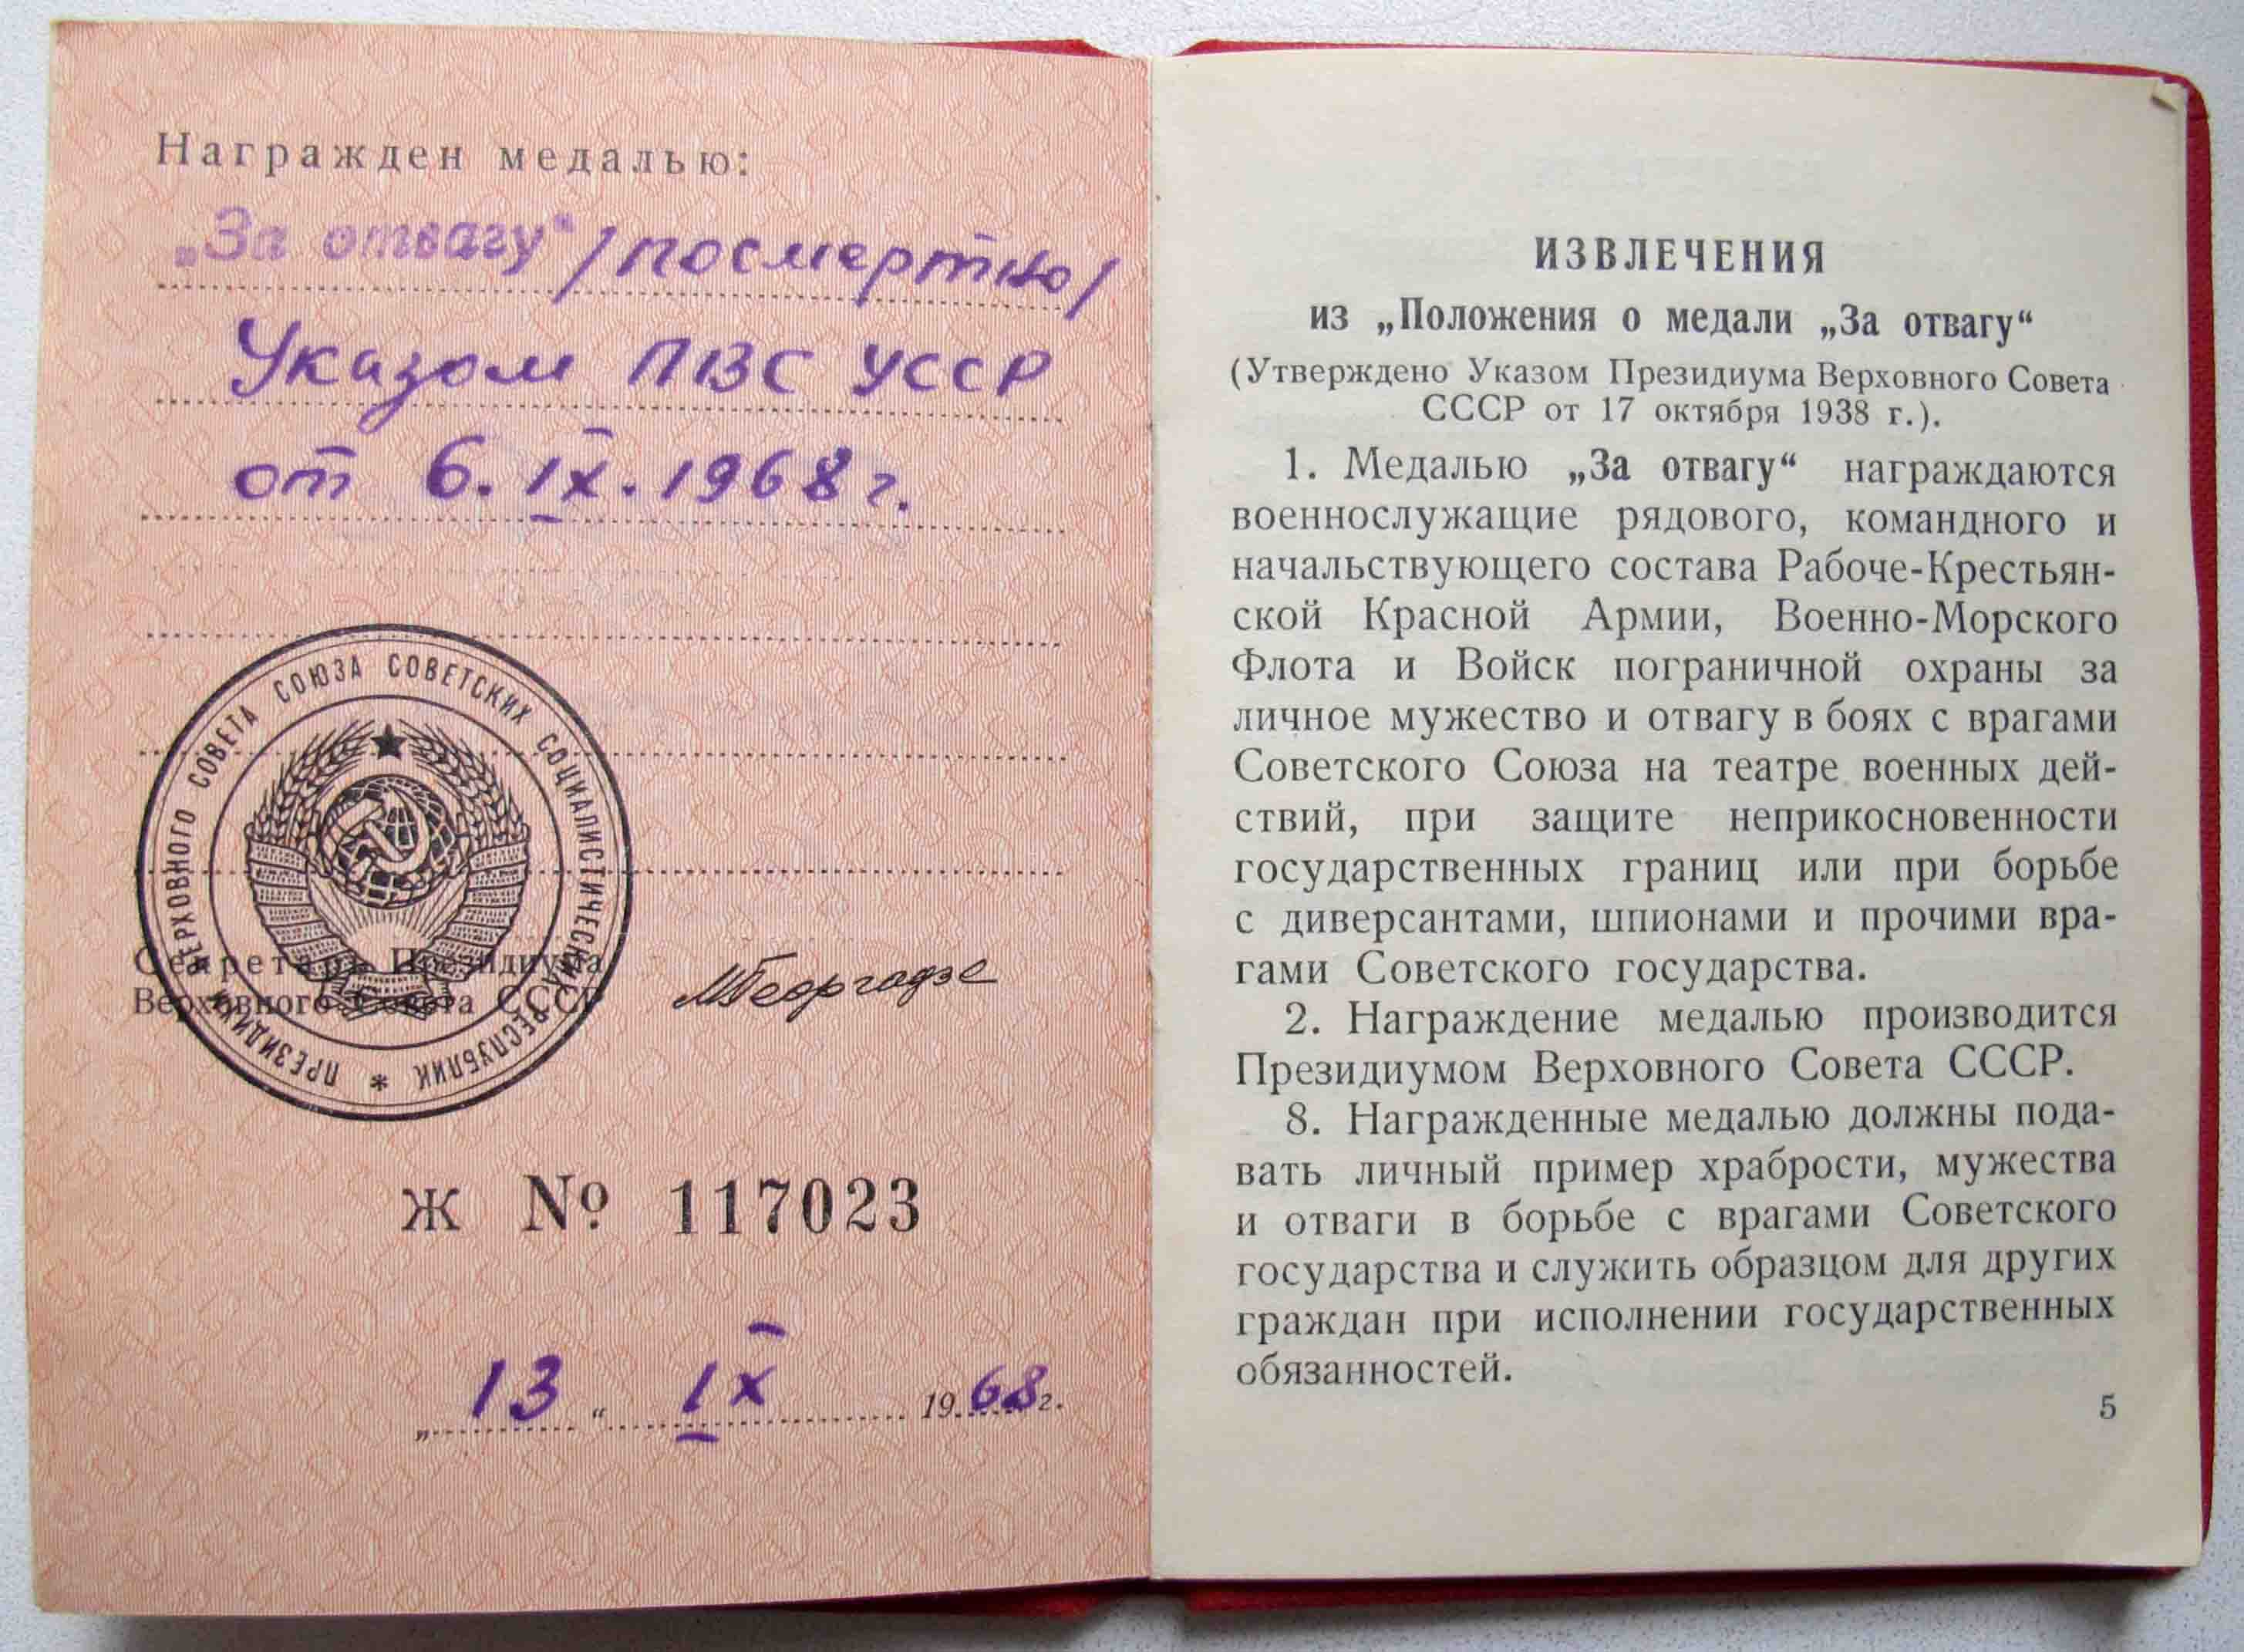 Награжден медалью:
„За отвагу“ /посмертно/
Указом ПВС УССР
от 6.IX.1968 г.
ПРЕЗИДИУМ ВЕРХОВНОГО СОВЕТА СОЮЗА СОВЕТСКИХ СОЦИАЛИСТИЧЕСКИХ РЕСПУБЛИК *
Секретарь Президиума
Верховного Совета СССР
МГеоргадзе
Ж № 117023
„13“ IX 1968 г.
ИЗВЛЕЧЕНИЯ
из „Положения о медали „За отвагу“
(Утверждено Указом Президиума Верховного Совета
СССР от 17 октября 1938 г.).
1. Медалью „За отвагу“ награждаются
военнослужащие рядового, командного и
начальствующего состава Рабоче-Крестьян-
ской Красной Армии, Военно-Морского
Флота и Войск пограничной охраны за
личное мужество и отвагу в боях с врагами
Советского Союза на театре военных дей-
ствий, при защите неприкосновенности
государственных границ или при борьбе
с диверсантами, шпионами и прочими вра-
гами Советского государства.
2. Награждение медалью производится
Президиумом Верховного Совета СССР.
8. Награжденные медалью должны пода-
вать личный пример храбрости, мужества
и отваги в борьбе с врагами Советского
государства и служить образцом для других
граждан при исполнении государственных
обязанностей.
5